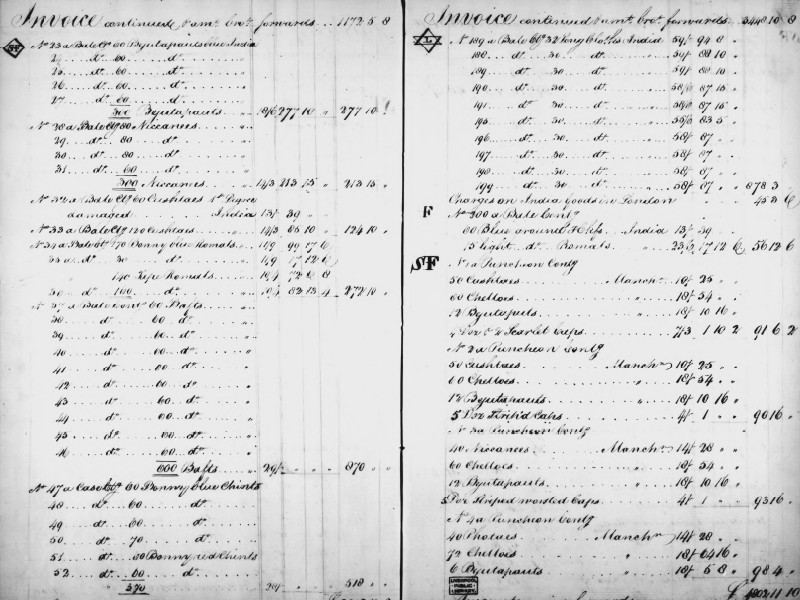 Invoice continued & amt. brot. forwards . . . 1172 5 8
No 23 a Bale Ctg 60 Byutapauts blue India
24 . . . dt. 60 . . . . dt.
25 . . . dt. 60 . . . . dt.
26 . . . dt. 60 . . . . dt.
27 . . . dt. 60 . . . . dt.
300 Byutapauts . . 18/6 277 10 " 277 10 "
No 28 a Bale Ctg 80 Niccanees . . . "
29 . . dt. 80 . . . dt.
30 . . dt. 80 . . . dt.
31 . . dt. 60 . . . dt.
300 Niccanees . . " 14/3 213 15 " 213 15 "
No 32 a Bale Ctg 60 Cushtaes
damaged . . . India 13/ 39 "
No 33 a Bale Ctg 120 Cushtaes . . " 14/3 85 10 " 124 10 "
No 34 a Bale Cont 170 Bonny blue Romals . . 11/9 99 17 6
35 a . . dt. 30 . . dt. 11/9 17 12 6
140 Romals . . " 10/4 72 6 8
36 . . dt. 160 . . dt. . . " 10/4 82 13 4 272 10 "
No 37 a Bale Cont 60 Bafts . . "
38 . . . dt. 60 dt.
39 . . . dt. 60 dt.
40 . . . dt. 60 dt.
41 . . . dt. 60 dt.
42 . . . dt. 60 dt.
43 . . . dt. 60 dt.
44 . . . dt. 60 dt.
45 . . . dt. 60 dt.
46 . . . dt. 60 dt.
600 Bafts . . 29/ " " 870 " "
No 47 a Case Ctg 60 Bonny blue Chints
48 . . . dt. 60 . . . dt.
49 . . . dt. 60 . . . dt.
50 . . . dt. 70 . . . dt.
51 . . . dt. 60 Bonny red Chints
52 . . . dt. 60 . . . dt.
370 28/ . . 518 " "
Invoice continued & amt. brot. forwards . . 3448 10 8
L
No 189 a Bale Ctg 32 Long Cloths India 59/ 94 8 "
188 . . dt. 30 . . dt. 59/ 88 10 "
189 . . dt. 30 . . dt. 59/ 88 10 "
190 . . dt. 30 . . dt. 58/6 87 15 "
191 . . dt. 30 . . dt. 58/6 87 15 "
195 . . dt. 30 . . dt. 83 5 "
196 . . dt. 30 . . dt. 58/ 87 "
197 . . dt. 30 . . dt. 58/ 87 "
198 . . dt. 30 . . dt. 58/ 87 "
199 . . dt. 30 . . dt. 58/ 87 " 878 3 "
Charges on India Goods in London 45 3 6
F
No 200 a Bale Contg
60 Blue India 13/ 39 "
15 light . . dt. Romals . . 23/6 17 12 6 56 12 6
SF
No 1 a Puncheon Contg
50 Cushtaes . . . Manchr. 10/ 25 "
60 Chelloes . . . " 18/ 54 "
12 Byutapauts . . . " 18/ 10 16 "
Doz Scarlet Caps . . 7/3 1 10 2 91 6 2
No 2 a Puncheon Contg
50 Cushtaes . . . Manchr. 10/ 25 "
60 Chelloes . . . " 18/ 54 "
12 Byutapauts . . . " 18/ 10 16 "
5 Doz Striped Caps . . . 4/ 1 " " 90 16 "
No 3 a Puncheon Contg
40 Niccanees . . . Manchr. 14/ 28 "
60 Chelloes . . . " 18/ 54 "
12 Byutapauts . . . " 18/ 10 16 "
5 Doz Striped worsted Caps . . 4/ 1 " " 93 16 "
No 4 a Puncheon Contg
40 Photaes . . . Manchr. 14/ 28 "
72 Chelloes . . . " 18/ 64 16 "
6 Byutapauts . . . " 18/ 5 8 " 98 4 "
LIVERPOOL PUBLIC LIBRARY
£ 4802 11 10